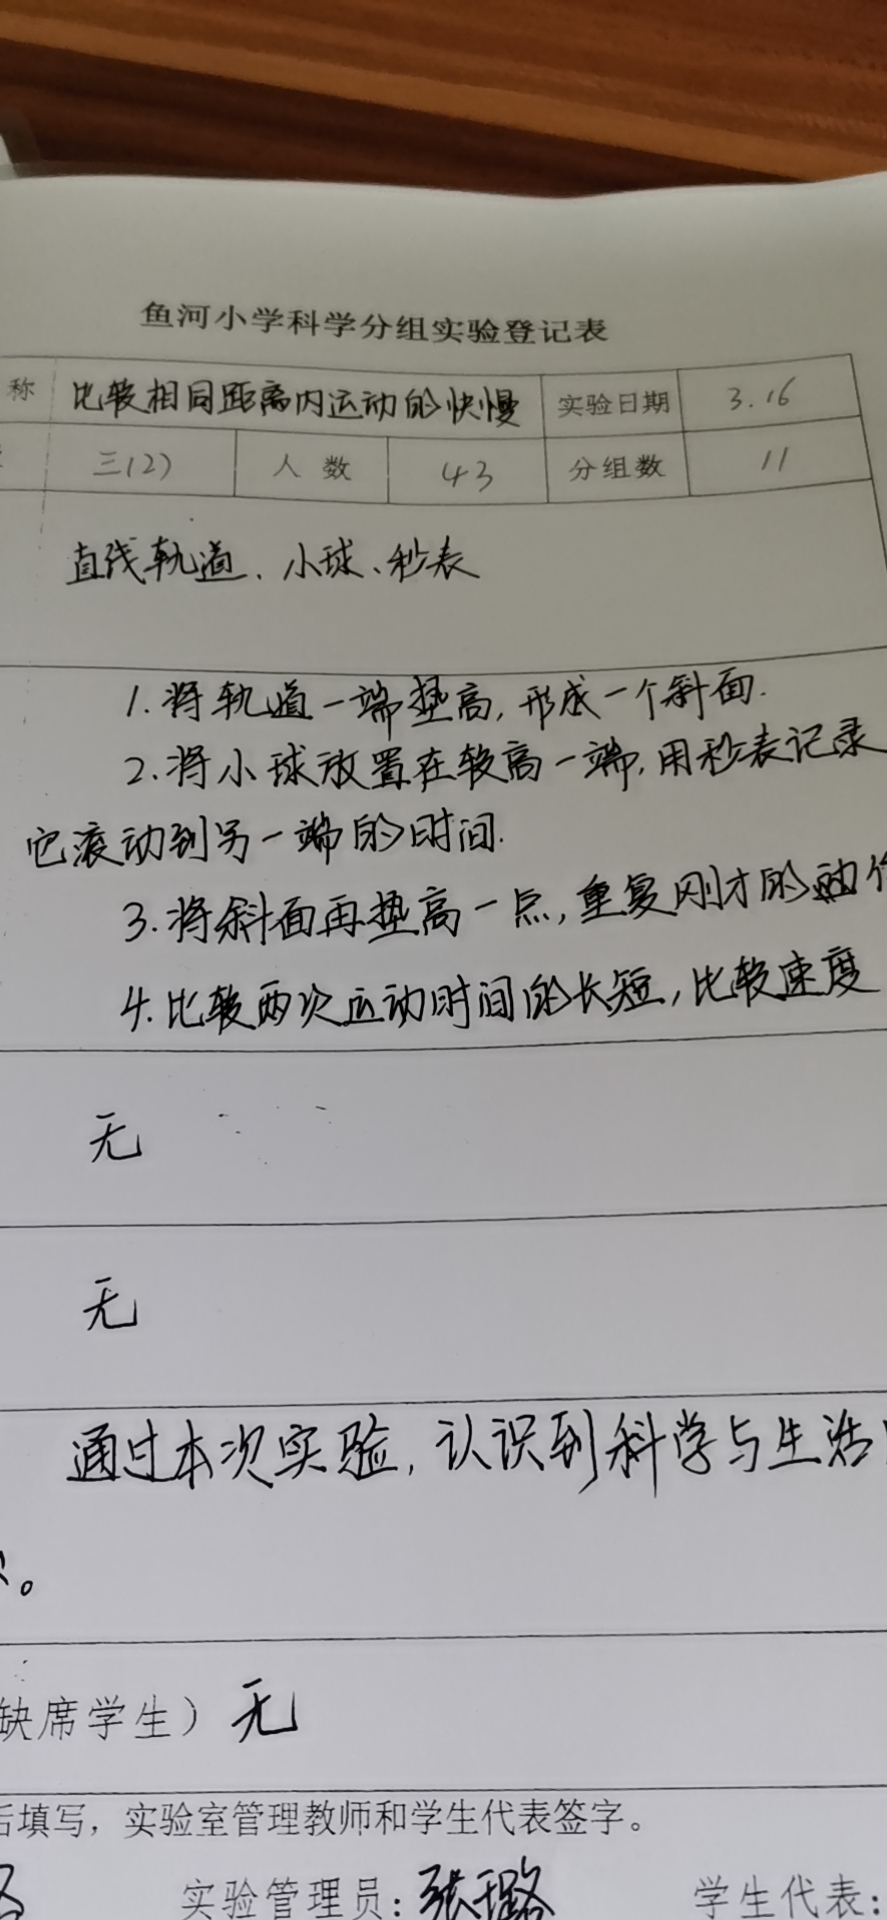 鱼河小学科学分组实验登记表
称 比较相同距离内运动的快慢 实验日期 3.16
三(2) 人数 43 分组数 11
直线轨道、小球、秒表
1.将轨道一端垫高,形成一个斜面.
2.将小球放置在较高一端,用秒表记录
它滚动到另一端的时间.
3.将斜面再垫高一点,重复刚才的动作
4.比较两次运动时间的长短,比较速度
无
无
通过本次实验,认识到科学与生活
。
缺席学生)无
后填写,实验室管理教师和学生代表签字。
实验管理员:张璐 学生代表: